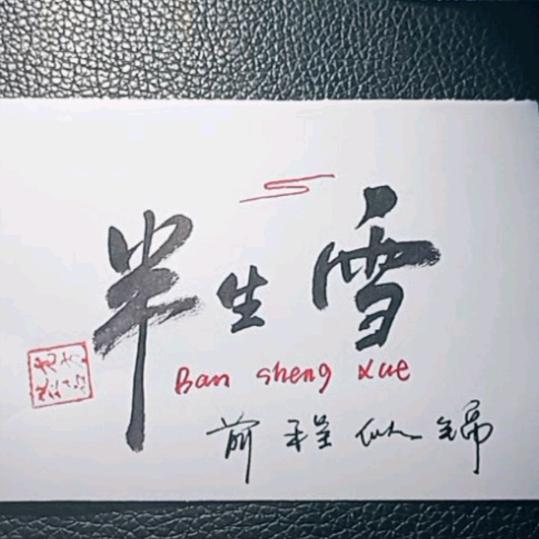 半生雪
Ban sheng xue
前程似锦